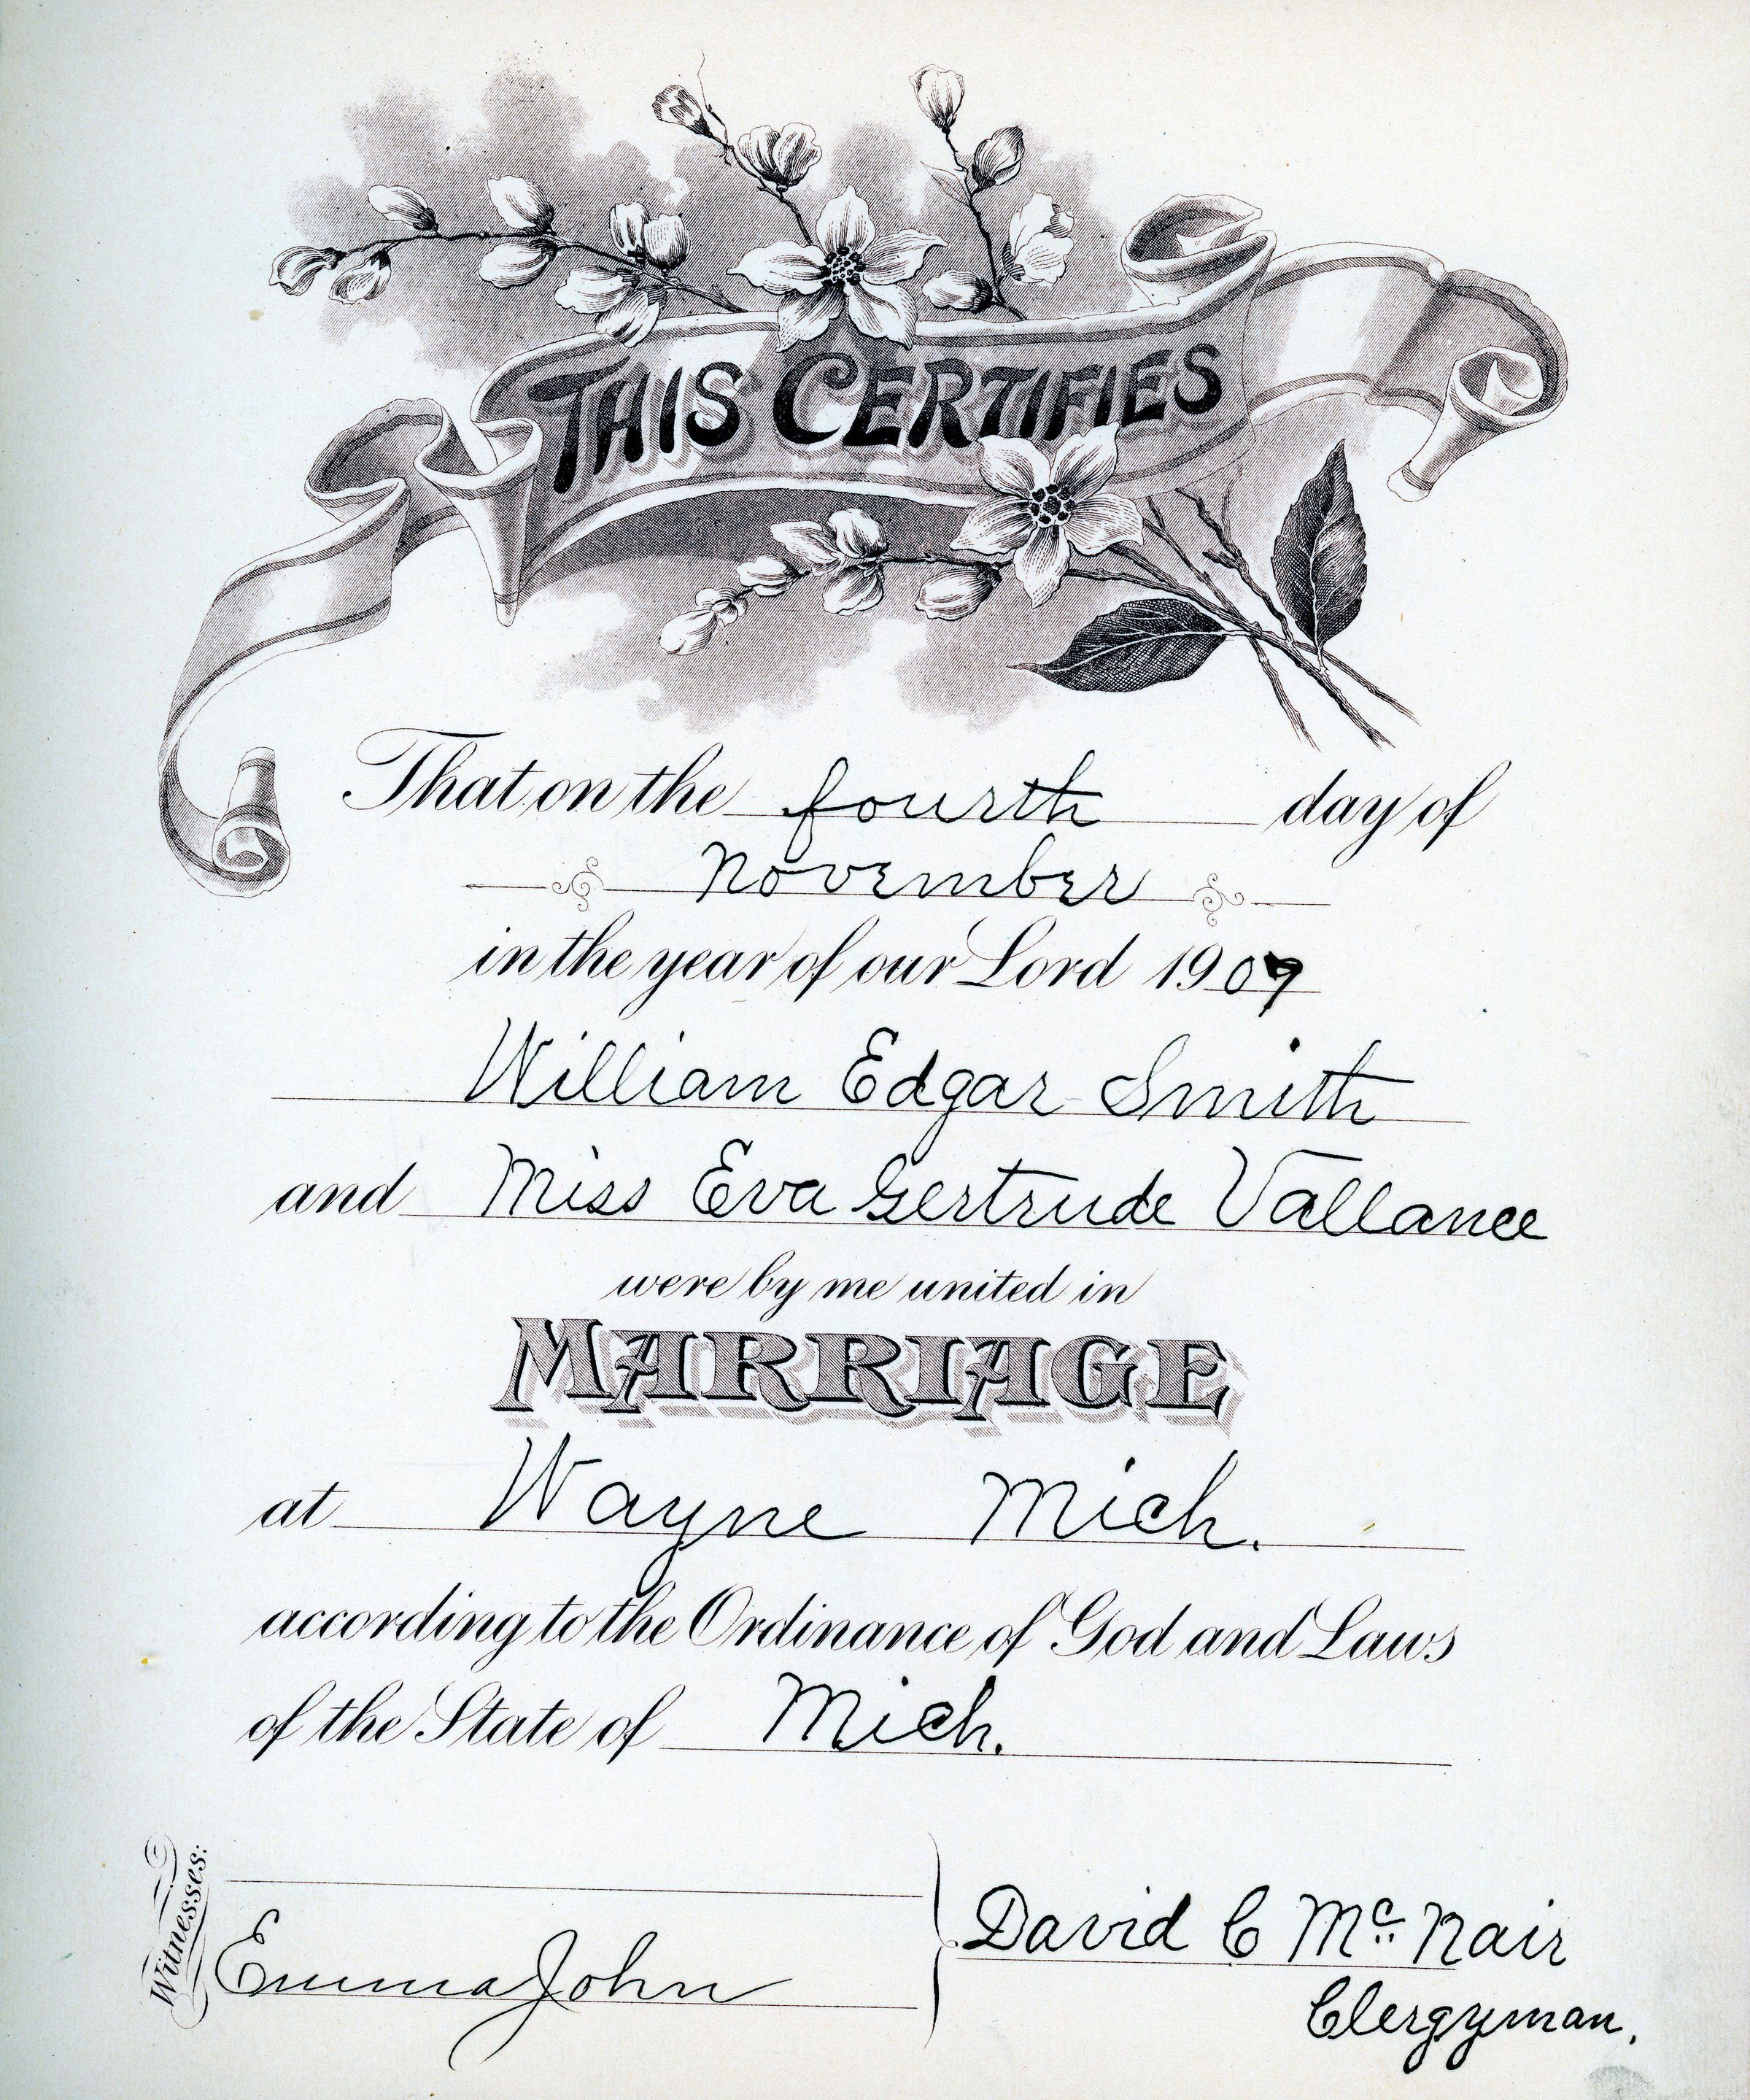 THIS CERTIFIES
That on the fourth day of
November
in the year of our Lord 1909
William Edgar Smith
and Miss Eva Gertrude Vallance
were by me united in
MARRIAGE
at Wayne Mich.
according to the Ordinance of God and Laws
of the State of Mich.
Witnesses:
Emma John
David C Mc Nair
Clergyman.